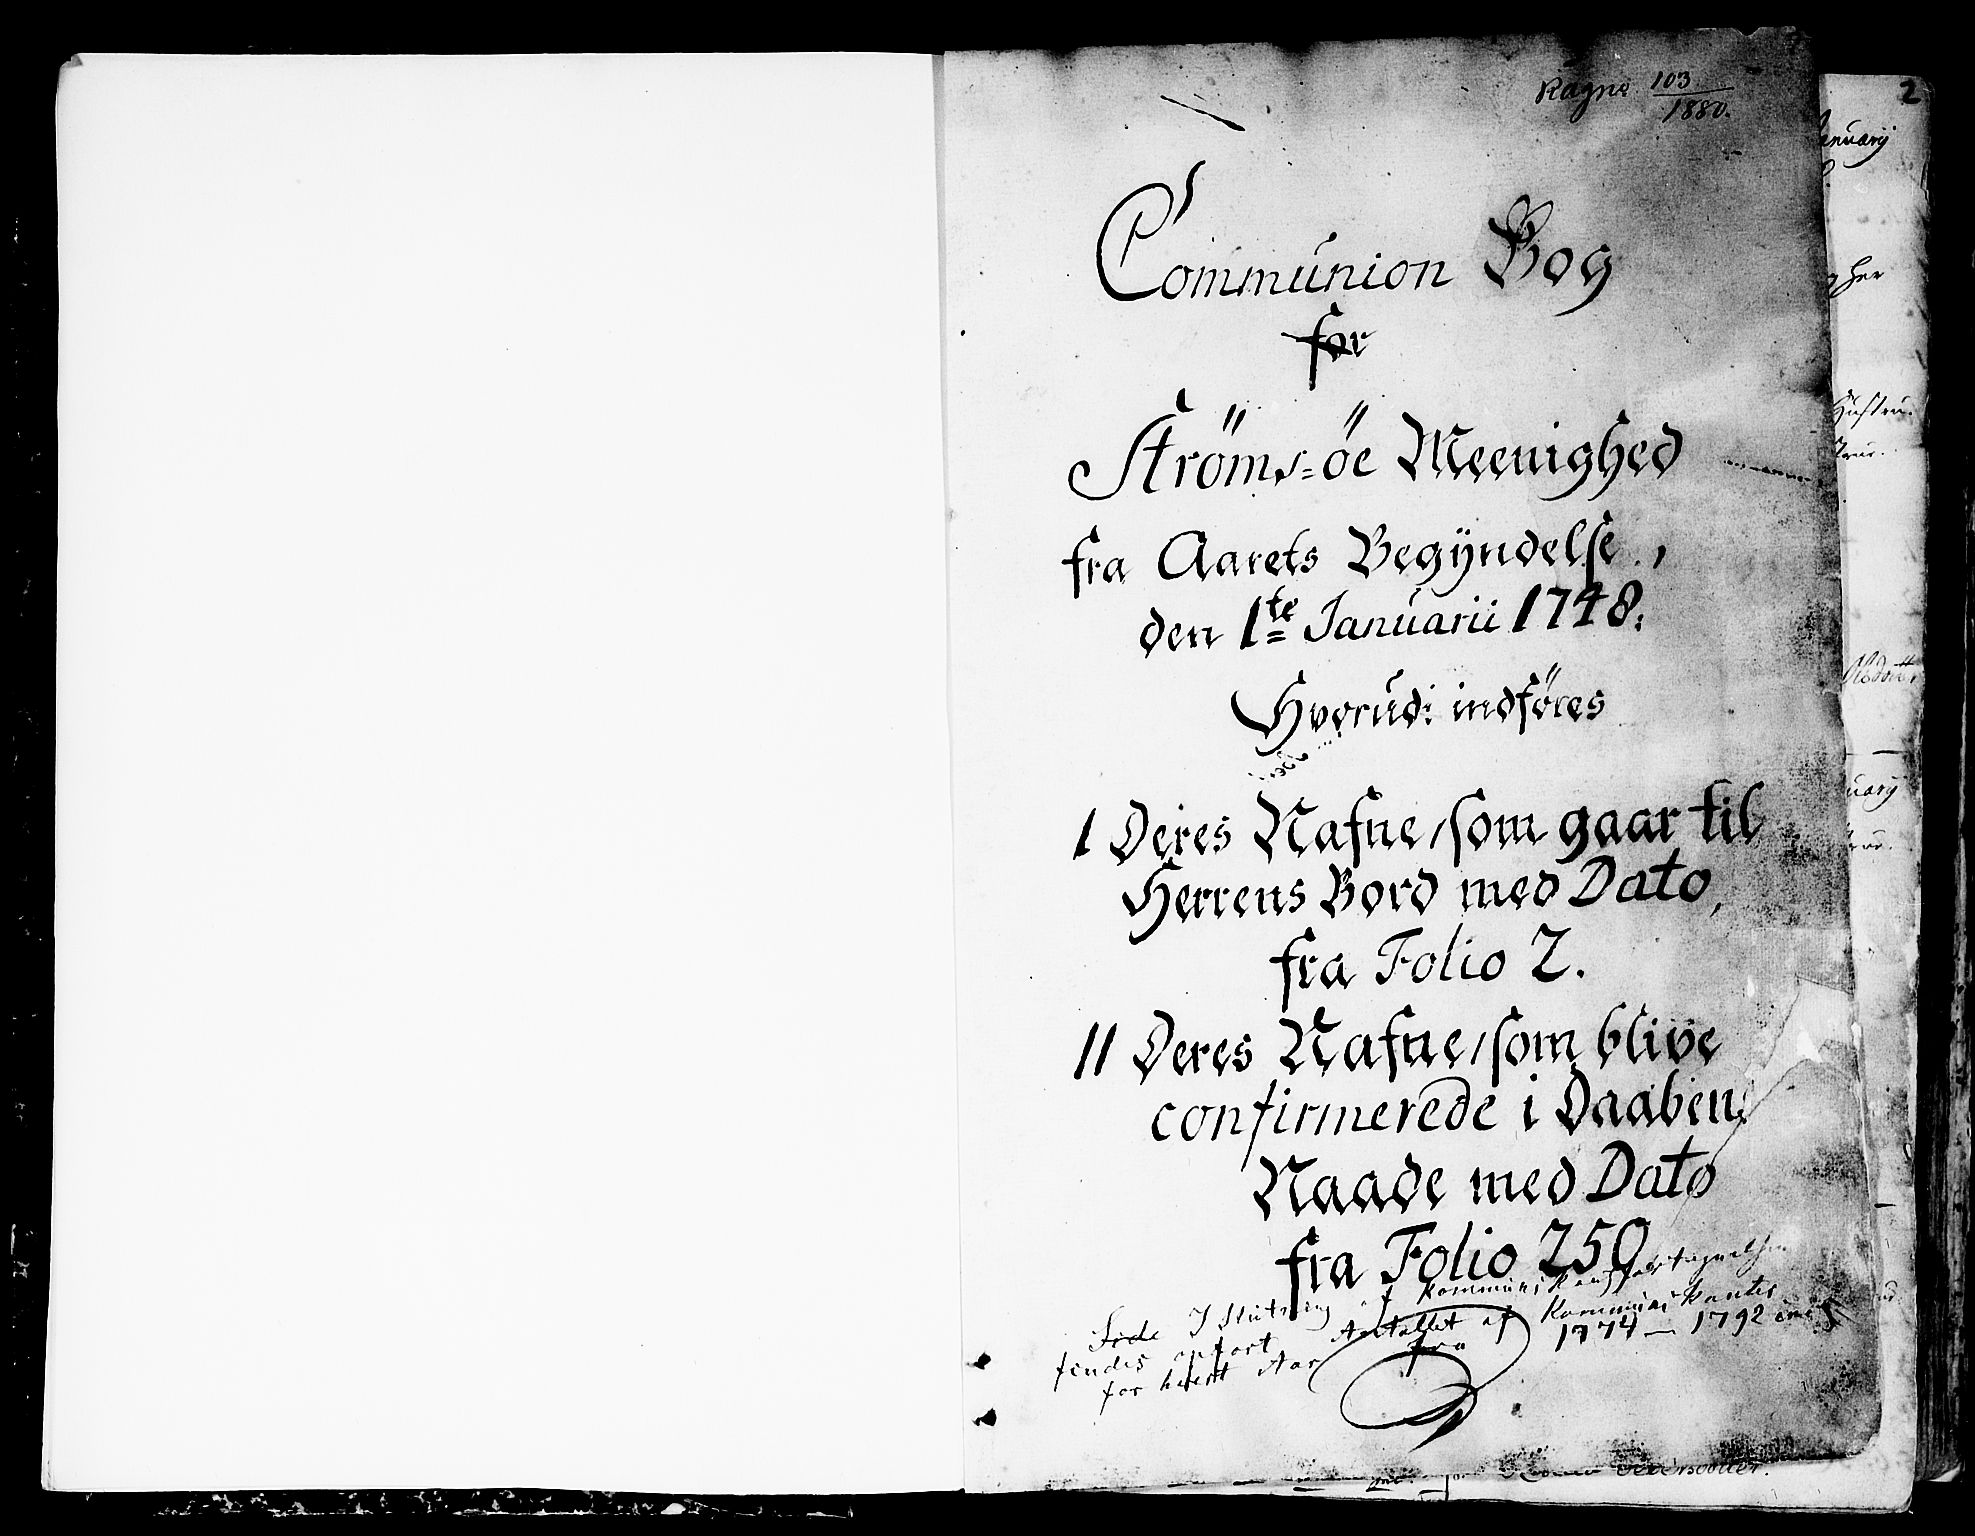 103
1880.
Communion Bog
for
Ströms=öe Meenighed
fra Aarets Begÿndelse,
den 1te Januarii 1748.
Hvorudi indföres
I Deres Nafne, som gaar til
Herrens Bord med Dato,
fra Folio 2.
II Deres Nafne, som blive
confirmerede i Daabens
Naade med Dato
fra Folio 250
Side I Slutning af
findes opført Antallet af Kommunikanter
for hvert Aar fra 1774 — 1792
2
anuarij
Hustru.
uarij